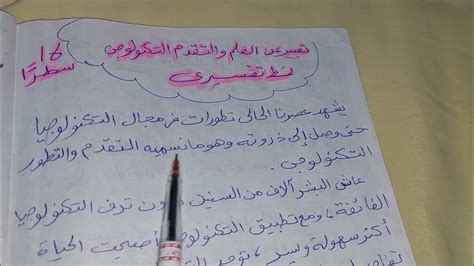 تعبير عن العلم والتقدم التكنولوجي
نمط تفسيري
16
سطرًا
يشهد عصرنا الحالي تطورات في مجال التكنولوجيا
حتى وصل إلى ذروته وهو ما نسميه التقدم والتطور
التكنولوجي.
عاش البشر آلاف من السنين دون ترف التكنولوجيا
الفائقة، ومع تطبيق التكنولوجيا أصبحت الحياة
أكثر سهولة ويسر،